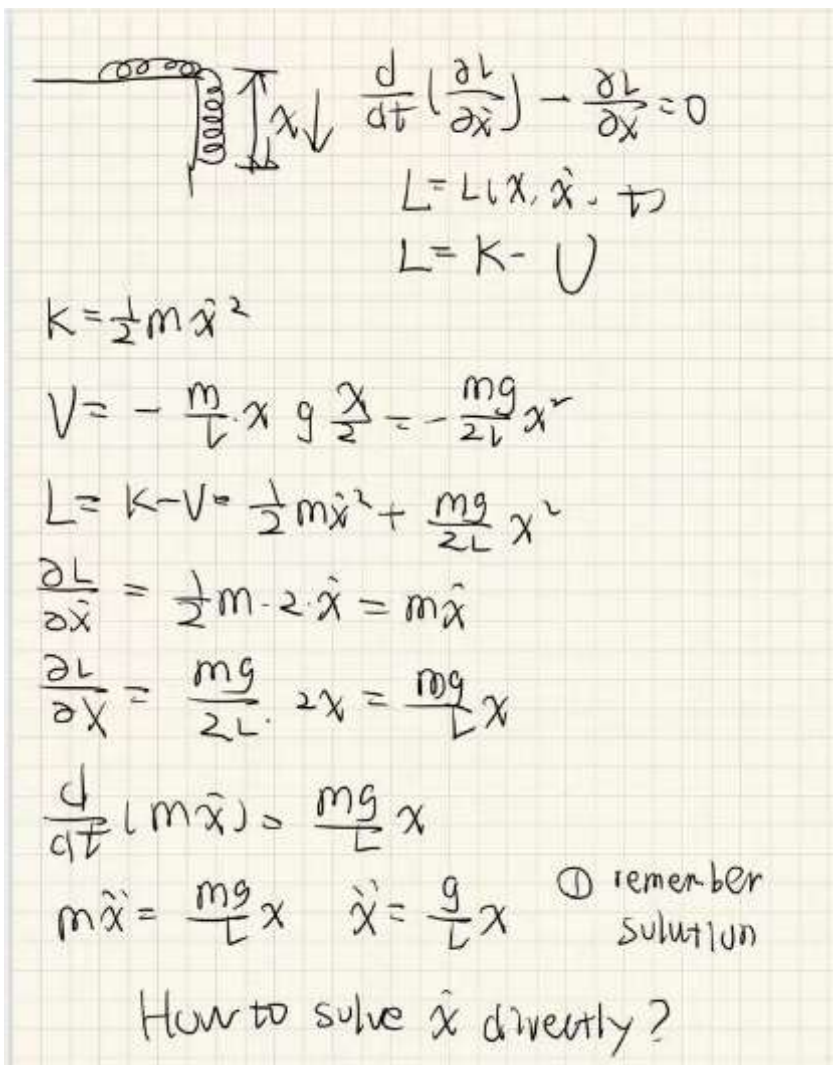 x↓ d/dt (∂L/∂ẋ) - ∂L/∂x = 0
L = L(x, ẋ, t)
L = K - U
K = 1/2 m ẋ²
V = - m/L · x g x/2 = - mg/2L x²
L = K - V = 1/2 m ẋ² + mg/2L x²
∂L/∂ẋ = 1/2 m · 2 · ẋ = m ẋ
∂L/∂x = mg/2L · 2x = mg/L x
d/dt (m ẋ) = mg/L x
m ẍ = mg/L x ẍ = g/L x ① remember
sulution
How to sulve ẋ directly?